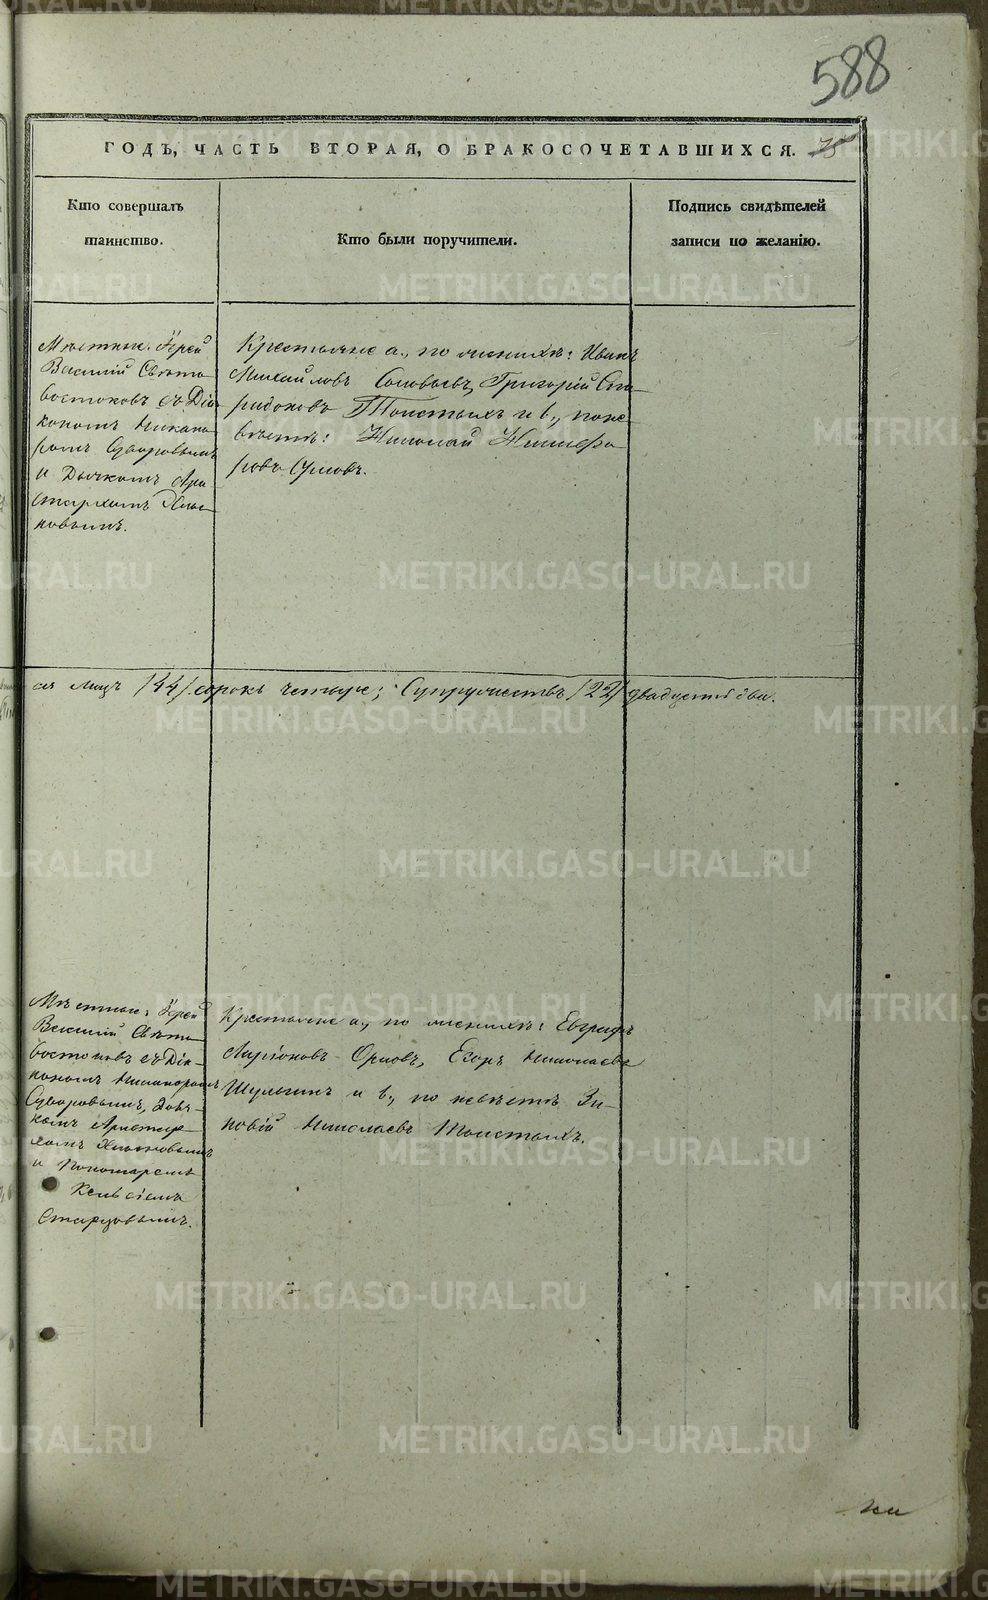 588
ГОДЪ, ЧАСТЬ ВТОРАЯ, О БРАКОСОЧЕТАВШИХСЯ. 75
Кто совершалъ
таинство.
Кто были поручители.
Подпись свидѣтелей
записи по желанію.
Мѣстные: Іерей
Василій Свѣто
востоковъ съ Діа
кономъ Никано
ромъ Суворовымъ
и Дьячкомъ Ари
стархомъ
новымъ.
Крестьяне а., по женихѣ: Иванъ
Михайловъ Соловьевъ, Григорій Спи
ридоновъ Толстыхъ и в., по не
вѣстѣ: Николай Никифо
ровъ
лицъ /44/ сорокъ четыре; Супружествъ /22/ двадцать два.
Мѣстные: Іерей
Василій Свѣто
востоковъ съ Діа-
кономъ Никаноромъ
Суворовымъ, Дьяч-
комъ Аристар
хомъ
и Пономаремъ
Старцовымъ.
Крестьяне а., по женихѣ: Евграфъ
Ларіоновъ Орловъ, Егоръ Николаевъ
Шульгинъ и в., по невѣстѣ Зи-
новій Николаевъ Толстыхъ.
METRIKI.GASO-URAL.RU